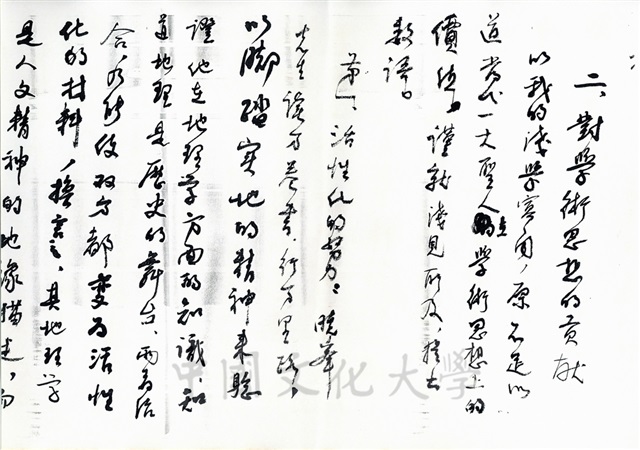 二、對學術思想的貢献
以我的淺學寡聞，原不足以
道當代一大聖人在學術思想上的
價值，謹就淺見所及，提出
數語。
第一、活性化的努力：曉峯
先生讀万卷書，行万里路，
以脚踏實地的精神来驗
證他在地理學方面的知識，知
道地理是歷史的舞台，兩者結
合，乃能使双方都變为活性
化的材料，換言之，其地理学
是人文精神的地象描述，向
中國文化大學